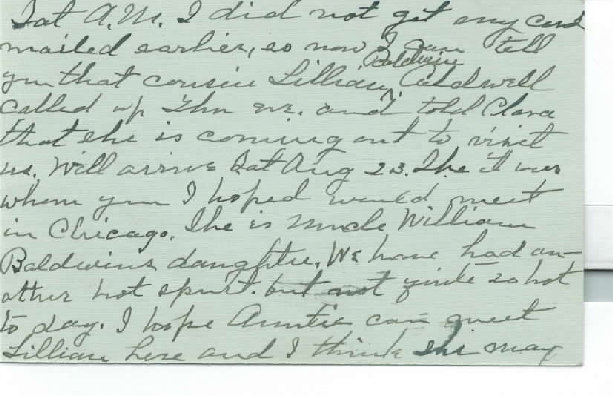 Sat A.M. I did not get my card
mailed earlier, so now I can tell
you that cousin Lillian Baldwin Caldwell
called up Thu eve. and told Clara
that she is coming out to visit
us. Will arrive Sat Aug 23. She it was
whom you I hoped would meet
in Chicago. She is Uncle William
Baldwins daughter. We have had an-
other hot spurt. but not quite so hot
to day. I hope Auntie can greet
Lillian here and I think she may